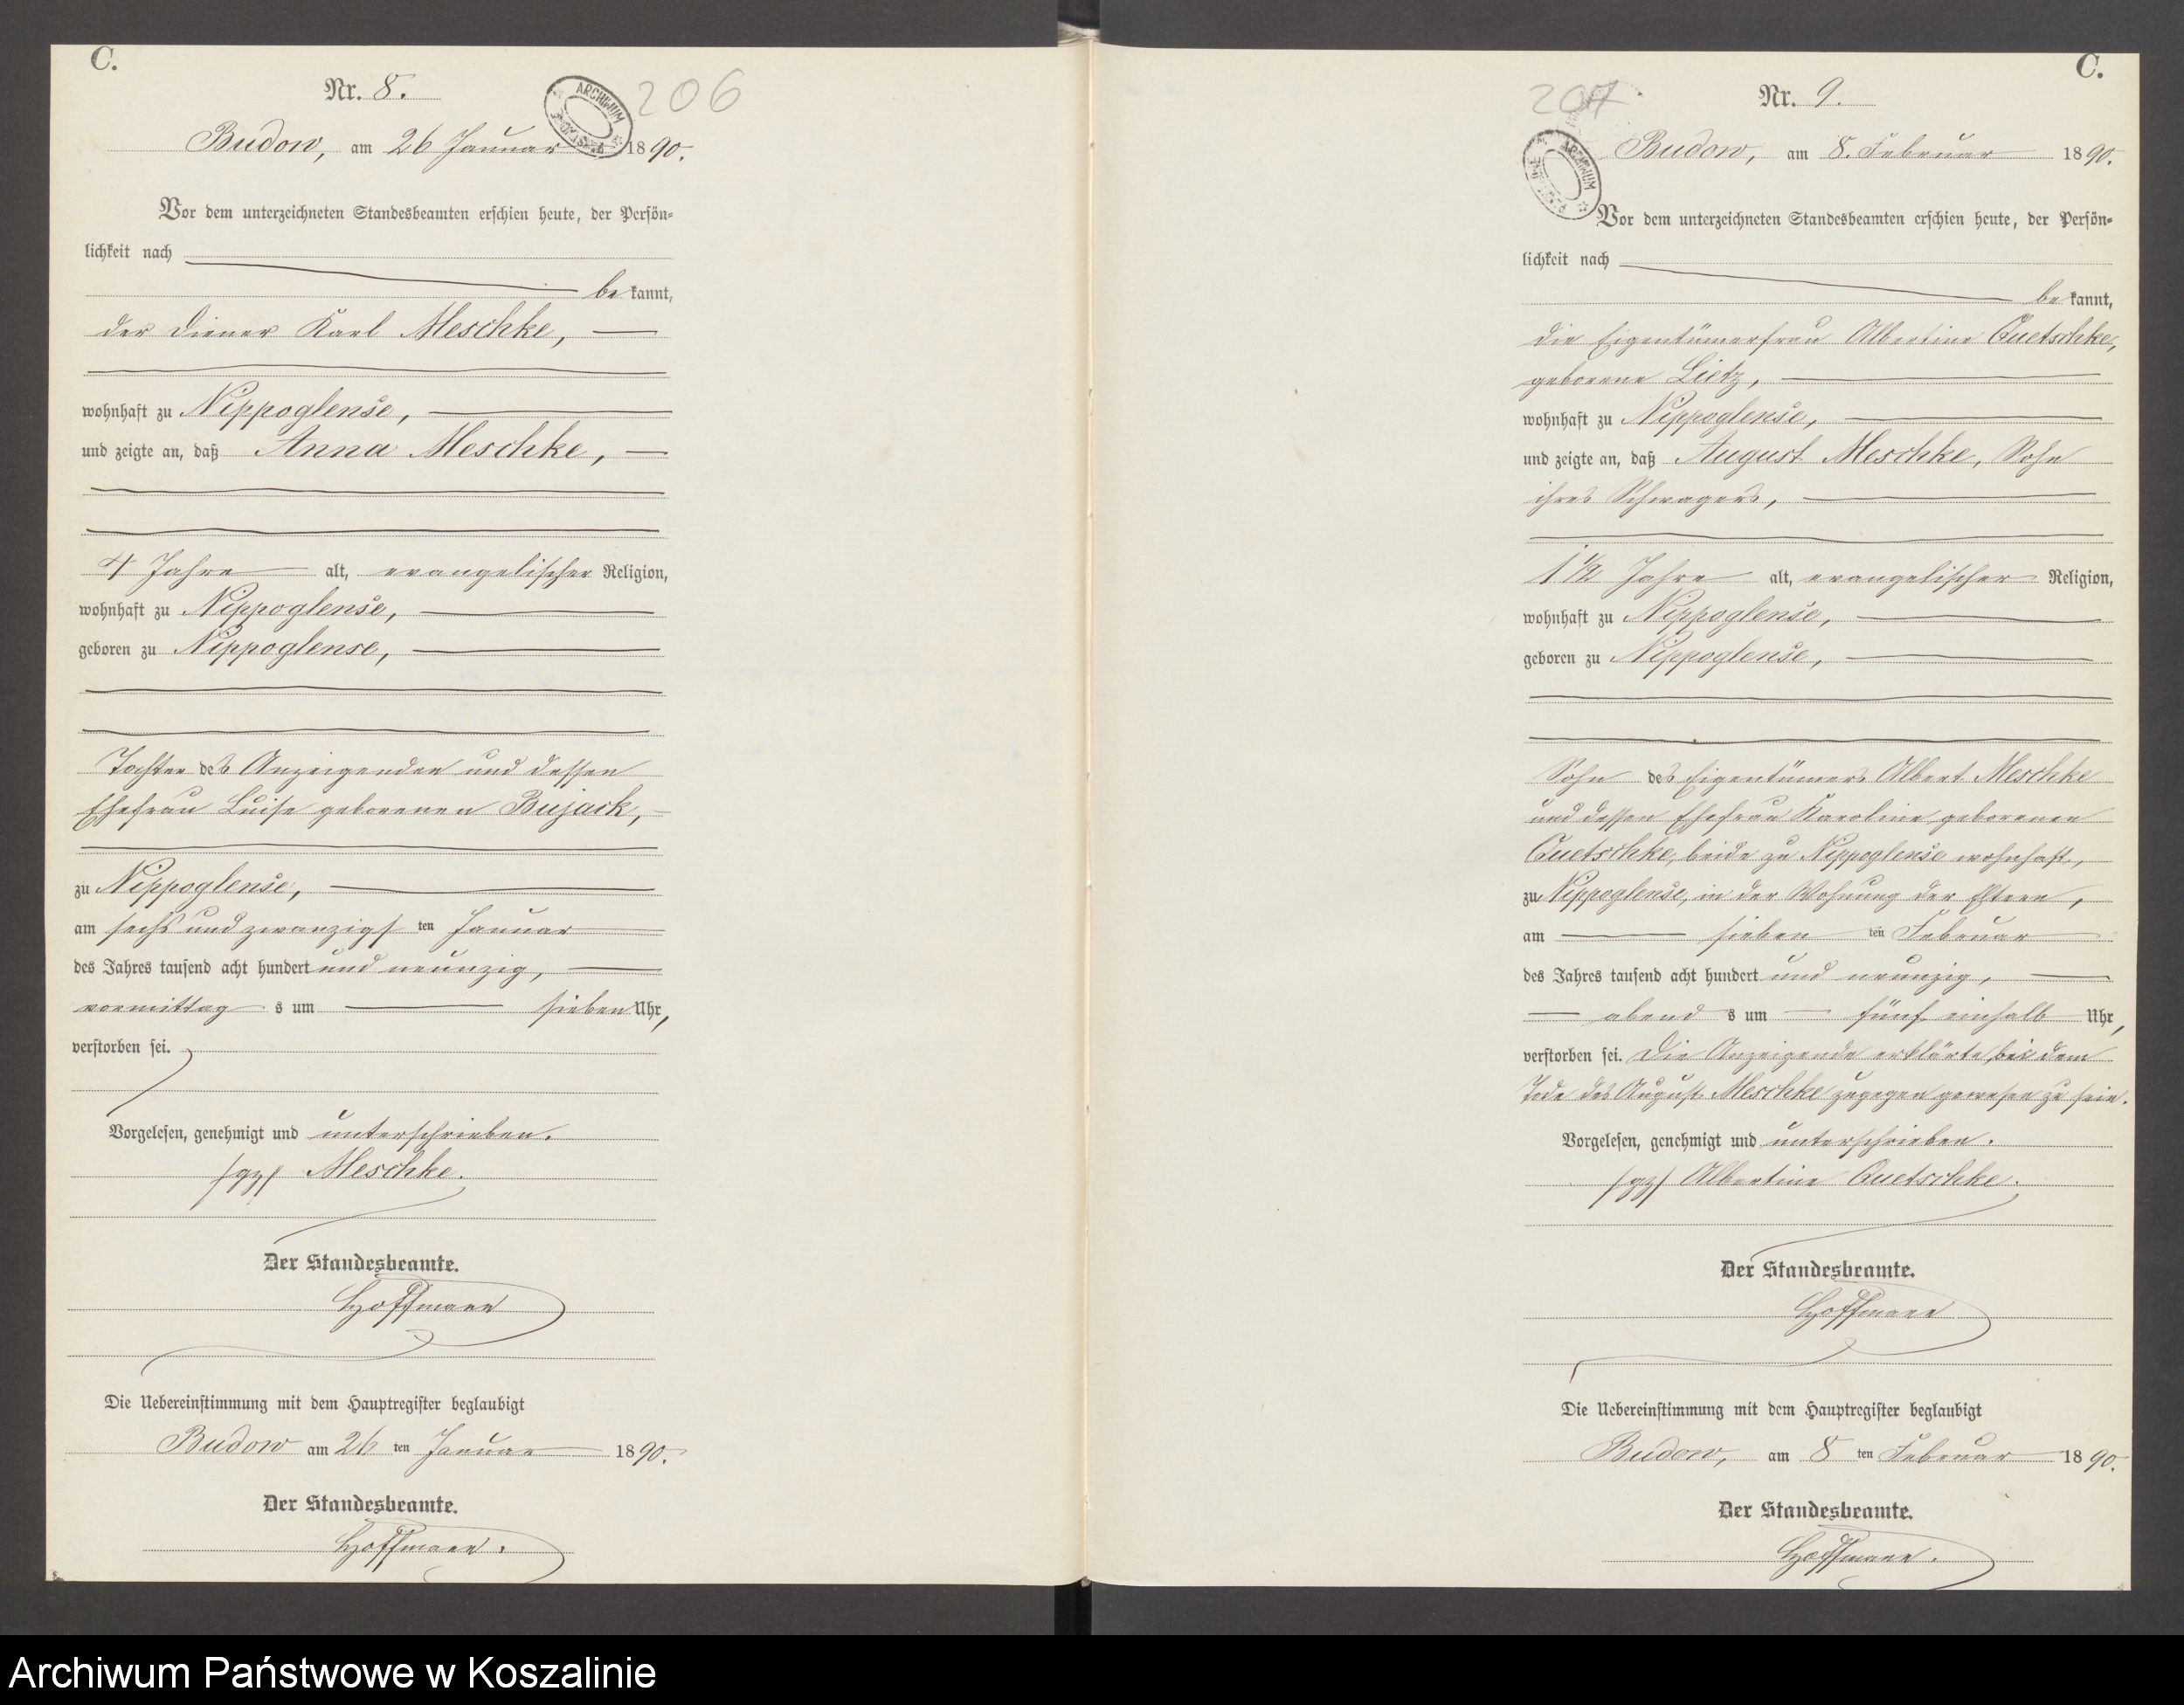 C.
Nr. 8.
206
ARCHIWUM
Budow, am 26 Januar 1890.
Vor dem unterzeichneten Standesbeamten erschien heute, der Persön-
lichkeit nach
be kannt,
der Diener Karl Meschke,
wohnhaft zu Nippoglense,
und zeigte an, daß Anna Meschke,
4 Jahre alt, evangelischer Religion,
wohnhaft zu Nippoglense,
geboren zu Nippoglense,
Tochter des Anzeigenden und dessen
Ehefrau Luise geborenen Bujack,
zu Nippoglense,
am sechs und zwanzigsten Januar
des Jahres tausend acht hundert und neunzig,
vormittag s um sieben Uhr,
verstorben sei.
Vorgelesen, genehmigt und unterschrieben.
/gz/ Meschke.
Der Standesbeamte.
Hoffmann
Die Uebereinstimmung mit dem Hauptregister beglaubigt
Budow am 26 ten Januar 1890.
Der Standesbeamte.
Hoffmann.
C.
207
Nr. 9.
ARCHIWUM
Budow, am 8. Februar 1890.
Vor dem unterzeichneten Standesbeamten erschien heute, der Persön-
lichkeit nach
be kannt,
die Eigentümerfrau Albertine Quetschke,
geborene Lietz,
wohnhaft zu Nippoglense,
und zeigte an, daß August Meschke, Sohn
ihres Schwagers,
1 1/2 Jahre alt, evangelischer Religion,
wohnhaft zu Nippoglense,
geboren zu Nippoglense,
Sohn des Eigentümers Albert Meschke
und dessen Ehefrau Karoline geborenen
Quetschke, beide zu Nippoglense wohnhaft,
zu Nippoglense, in der Wohnung der Eltern,
am sieben ten Februar
des Jahres tausend acht hundert und neunzig,
abend s um fünf einhalb Uhr,
verstorben sei. Die Anzeigende erklärte, bei dem
Tode des August Meschke zugegen gewesen zu sein.
Vorgelesen, genehmigt und unterschrieben.
/gz/ Albertine Quetschke.
Der Standesbeamte.
Hoffmann
Die Uebereinstimmung mit dem Hauptregister beglaubigt
Budow, am 8 ten Februar 1890.
Der Standesbeamte.
Hoffmann.
Archiwum Państwowe w Koszalinie